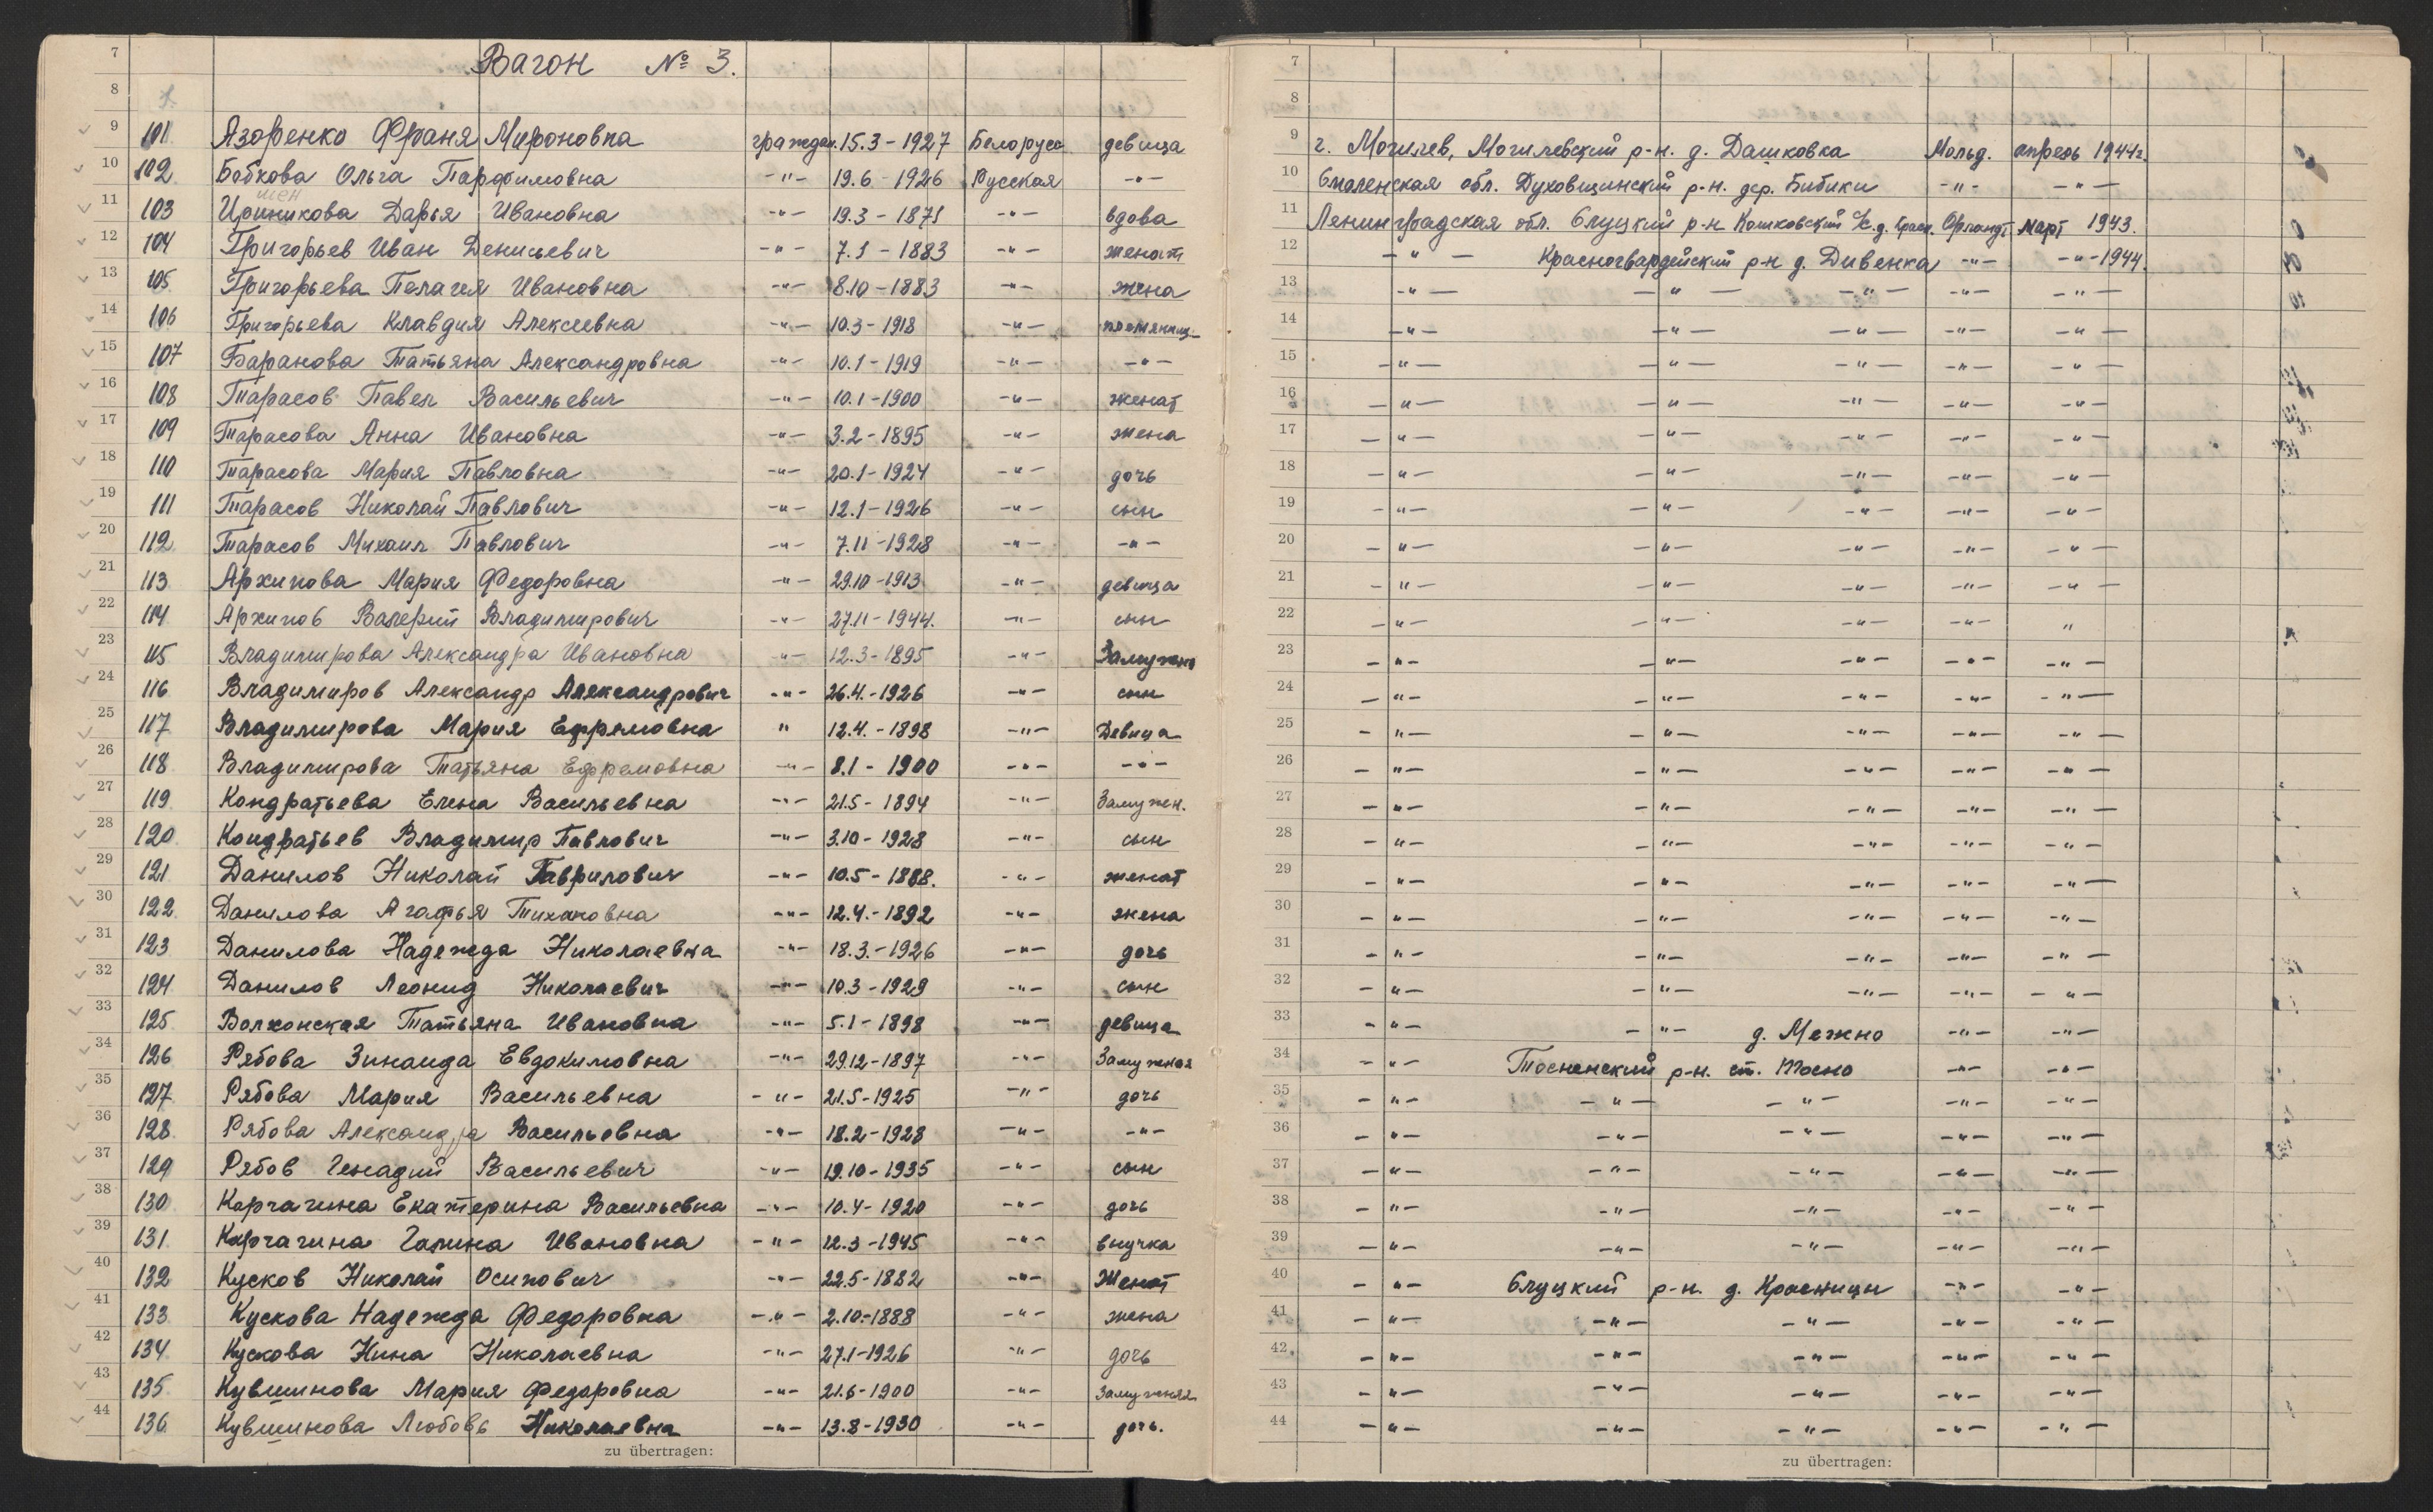 7 Вагон № 3. 7
8 8
9 101 Азоренко Франя Мироновна граждан. 15.3-1927 Белорусс девица 9 г. Могилев, Могилевский р-н. д. Дашковка Мольд. апрель 1944г.
10 102 Бобкова Ольга Парфимовна -"- 19.6-1926 Русская -"- 10 Смоленская обл. Духовщинский р-н. дер. Бибики -"- -"-
11 103 Ириникова Дарья Ивановна -"- 19.3-1871 -"- вдова 11 Ленинградская обл. Слуцкий р-н Кошковский с/с. д. Красн. март 1943.
12 104 Григорьев Иван Денисьевич -"- 7.1-1883 -"- женат 12 -"- Красногвардейский р-н д. Дивенка -"- -"- 1944.
13 105 Григорьева Пелагея Ивановна -"- 8.10-1883 -"- жена 13 -"- -"- -"- -"- -"-
14 106 Григорьева Клавдия Алексеевна -"- 10.3-1918 -"- племянниц. 14 -"- -"- -"- -"- -"-
15 107 Баранова Татьяна Александровна -"- 10.1-1919 -"- -"- 15 -"- -"- -"- -"- -"-
16 108 Тарасов Павел Васильевич -"- 10.1-1900 -"- женат 16 -"- -"- -"- -"- -"-
17 109 Тарасова Анна Ивановна -"- 3.2-1895 -"- жена 17 -"- -"- -"- -"- -"-
18 110 Тарасова Мария Павловна -"- 20.1-1924 -"- дочь 18 -"- -"- -"- -"- -"-
19 111 Тарасов Николай Павлович -"- 12.1-1926 -"- сын 19 -"- -"- -"- -"- -"-
20 112 Тарасов Михаил Павлович -"- 7.11-1928 -"- -"- 20 -"- -"- -"- -"- -"-
21 113 Архипова Мария Федоровна -"- 29.10-1913 -"- девица 21 -"- -"- -"- -"- -"-
22 114 Архипов Валерий Владимирович -"- 27.11-1944. -"- сын 22 -"- -"- -"- -"- "
23 115 Владимирова Александра Ивановна -"- 12.3-1895 -"- Замужно 23 -"- -"- -"- -"- -"-
24 116 Владимиров Александр Александрович -"- 26.4.-1926 -"- сын 24 -"- -"- -"- -"- -"-
25 117 Владимирова Мария Ефремовна " 12.4.-1898 -"- Девица 25 -"- -"- -"- -"- -"-
26 118 Владимирова Татьяна Ефремовна -"- 8.1-1900 -"- -"- 26 -"- -"- -"- -"- -"-
27 119 Кондратьева Елена Васильевна -"- 21.5-1894 -"- Замужен. 27 -"- -"- -"- -"- -"-
28 120 Кондратьев Владимир Павлович -"- 3.10-1928 -"- сын 28 -"- -"- -"- -"- -"-
29 121 Данилов Николай Гаврилович -"- 10.5-1888. -"- женат 29 -"- -"- -"- -"- -"-
30 122 Данилова Агафья Тихоновна -"- 12.4.-1892 -"- жена 30 -"- -"- -"- -"- -"-
31 123 Данилова Надежда Николаевна -"- 18.3.-1926 -"- дочь 31 -"- -"- -"- -"- -"-
32 124 Данилов Леонид Николаевич -"- 10.3-1929 -"- сын 32 -"- -"- -"- -"- -"-
33 125 Волхонская Татьяна Ивановна -"- 5.1-1898 -"- девица 33 -"- -"- д. Межно -"- -"-
34 126 Рябова Зинаида Евдокимовна -"- 29.12-1897 -"- Замужняя 34 -"- Тосненский р-н. ст. Тосно -"- -"-
35 127 Рябова Мария Васильевна -"- 21.5-1925 -"- дочь 35 -"- -"- -"- -"- -"-
36 128 Рябова Александра Васильевна -"- 18.2-1928 -"- -"- 36 -"- -"- -"- -"- -"-
37 129 Рябов Генадий Васильевич -"- 19.10-1935 -"- сын 37 -"- -"- -"- -"- -"-
38 130 Корчагина Екатерина Васильевна -"- 10.4-1920 -"- дочь 38 -"- -"- -"- -"- -"-
39 131. Карчагина Галина Ивановна -"- 12.3-1945 -"- внучка 39 -"- -"- -"- -"- -"-
40 132 Кусков Николай Осипович -"- 22.5-1882 -"- Женат 40 -"- Слуцкий р-н. д. Красницы -"- -"-
41 133. Кускова Надежда Федоровна -"- 2.10-1888 -"- жена 41 -"- -"- -"- -"- -"-
42 134. Кускова Нина Николаевна -"- 27.1-1926 -"- дочь 42 -"- -"- -"- -"- -"-
43 135. Кувшинова Мария Федоровна -"- 21.6-1900 -"- Замужняя 43 -"- -"- -"- -"- -"-
44 136. Кувшинова Любовь Николаевна -"- 13.8-1930 -"- дочь. 44 -"- -"- -"- -"- -"-
zu übertragen: zu übertragen: